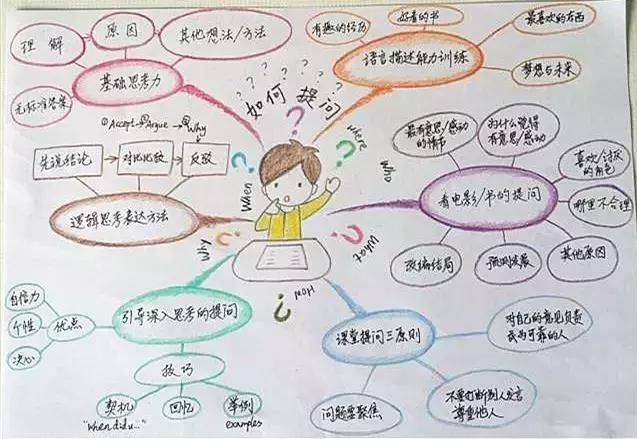 如何提问
Where
Who
What
How
Why
When
基础思考力
理解
原因
其他想法/方法
无标准答案
语言描述能力训练
有趣的经历
好看的书
最喜欢的东西
梦想与未来
看电影/书的提问
最有意思/感动
的情节
为什么觉得
有意思/感动
喜欢/讨厌
的角色
哪里不合理
其他原因
预测发展
改编结局
课堂提问三原则
对自己的意见负责
成为可靠的人
不要打断别人发言
尊重他人
问题要聚焦
引导深入思考的提问
优点
自信力
个性
决心
技巧
契机
"when did u..."
回忆
举例
examples
逻辑思考表达方法
①Accept→②Argue→③Why
先说结论
对比比较
反驳